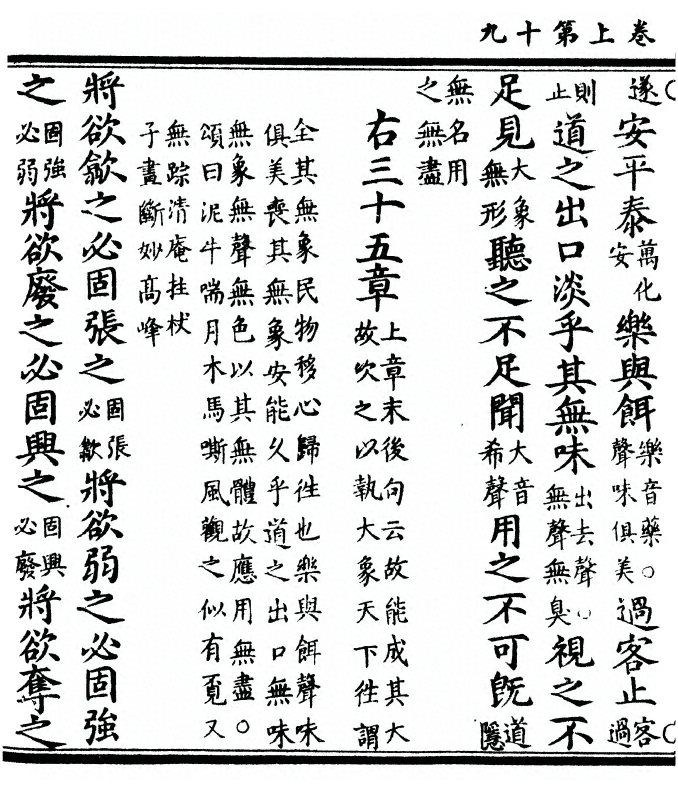 卷上第十九
遂安平泰萬化安樂與餌樂音藥○聲味俱美過客止客過
則止道之出口淡乎其無味出去聲○無聲無臭視之不
足見大象無形聽之不足聞大音希聲用之不可旣道隱
無名用之無盡
右三十五章上章末後句云故能成其大故次之以執大象天下徃謂
全其無象民物移心歸徃也樂與餌聲味
俱美喪其無象安能久乎道之出口無味
無象無聲無色以其無體故應用無盡○
頌曰泥牛喘月木馬嘶風觀之似有覓又
無踪清庵拄杖
子畫斷妙高峰
將欲歙之必固張之固張必歙將欲弱之必固強
之固強必弱將欲廢之必固興之固興必廢將欲奪之